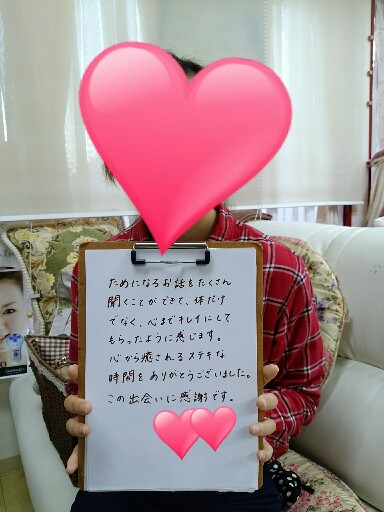 ためになるお話をたくさん
聞くことができて、体だけ
でなく、心までキレイにして
もらったように感じます。
心から癒されるステキな
時間をありがとうございました。
この出会いに感謝です。